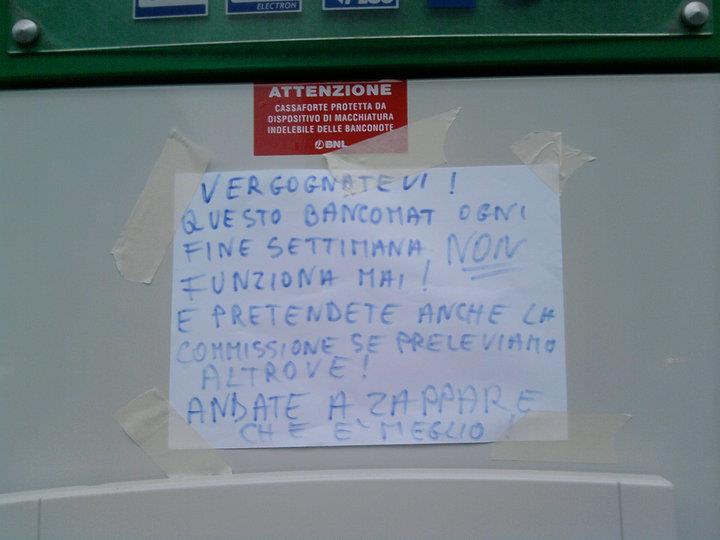 ELECTRON
ATTENZIONE
CASSAFORTE PROTETTA DA
DISPOSITIVO DI MACCHIATURA
INDELEBILE DELLE BANCONOTE
BNL
VERGOGNATEVI !
QUESTO BANCOMAT OGNI
FINE SETTIMANA NON
FUNZIONA MAI !
E PRETENDETE ANCHE LA
COMMISSIONE SE PRELEVIAMO
ALTROVE !
ANDATE A ZAPPARE
CHE E' MEGLIO !